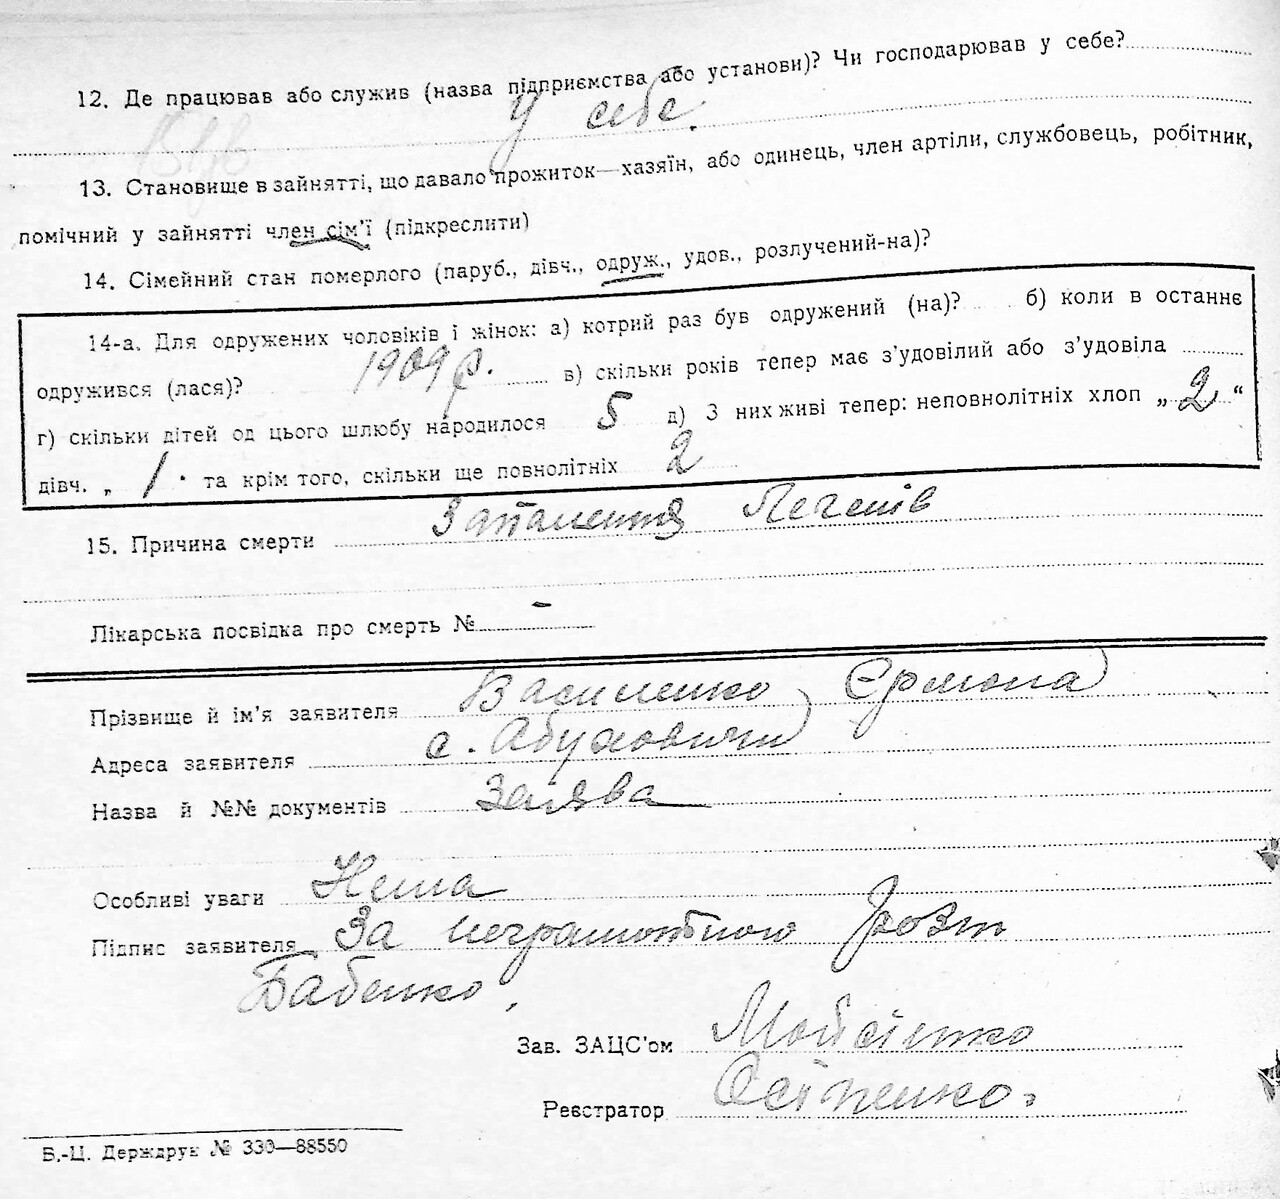 12. Де працював або служив (назва підприємства або установи)? Чи господарював у себе?
У себе.
13. Становище в зайнятті, що давало прожиток—хазяїн, або одинець, член артіли, службовець, робітник,
помічний у зайнятті член сім'ї (підкреслити)
14. Сімейний стан померлого (паруб., дівч., одруж., удов., розлучений-на)?
14-а. Для одружених чоловіків і жінок: а) котрий раз був одружений (на)? б) коли в останнє
одружився (лася)? 1909 р. в) скільки років тепер має з'удовілий або з'удовіла
г) скільки дітей од цього шлюбу народилося 5 д) З них живі тепер: неповнолітніх хлоп „ 2 “
дівч. „ 1 “ та крім того, скільки ще повнолітніх 2
15. Причина смерти Запалення Легенів
Лікарська посвідка про смерть № -
Прізвище й ім'я заявителя Василенко Єрмола
Адреса заявителя с. Обуховичи
Назва й №№ документів Заява
Особливі уваги Нема
Підпис заявителя За неграмотного розп
Бабенко,
Зав. ЗАЦС'ом Мойсієнко
Реєстратор Осіпенко.
Б.-Ц. Держдрук № 330—88550